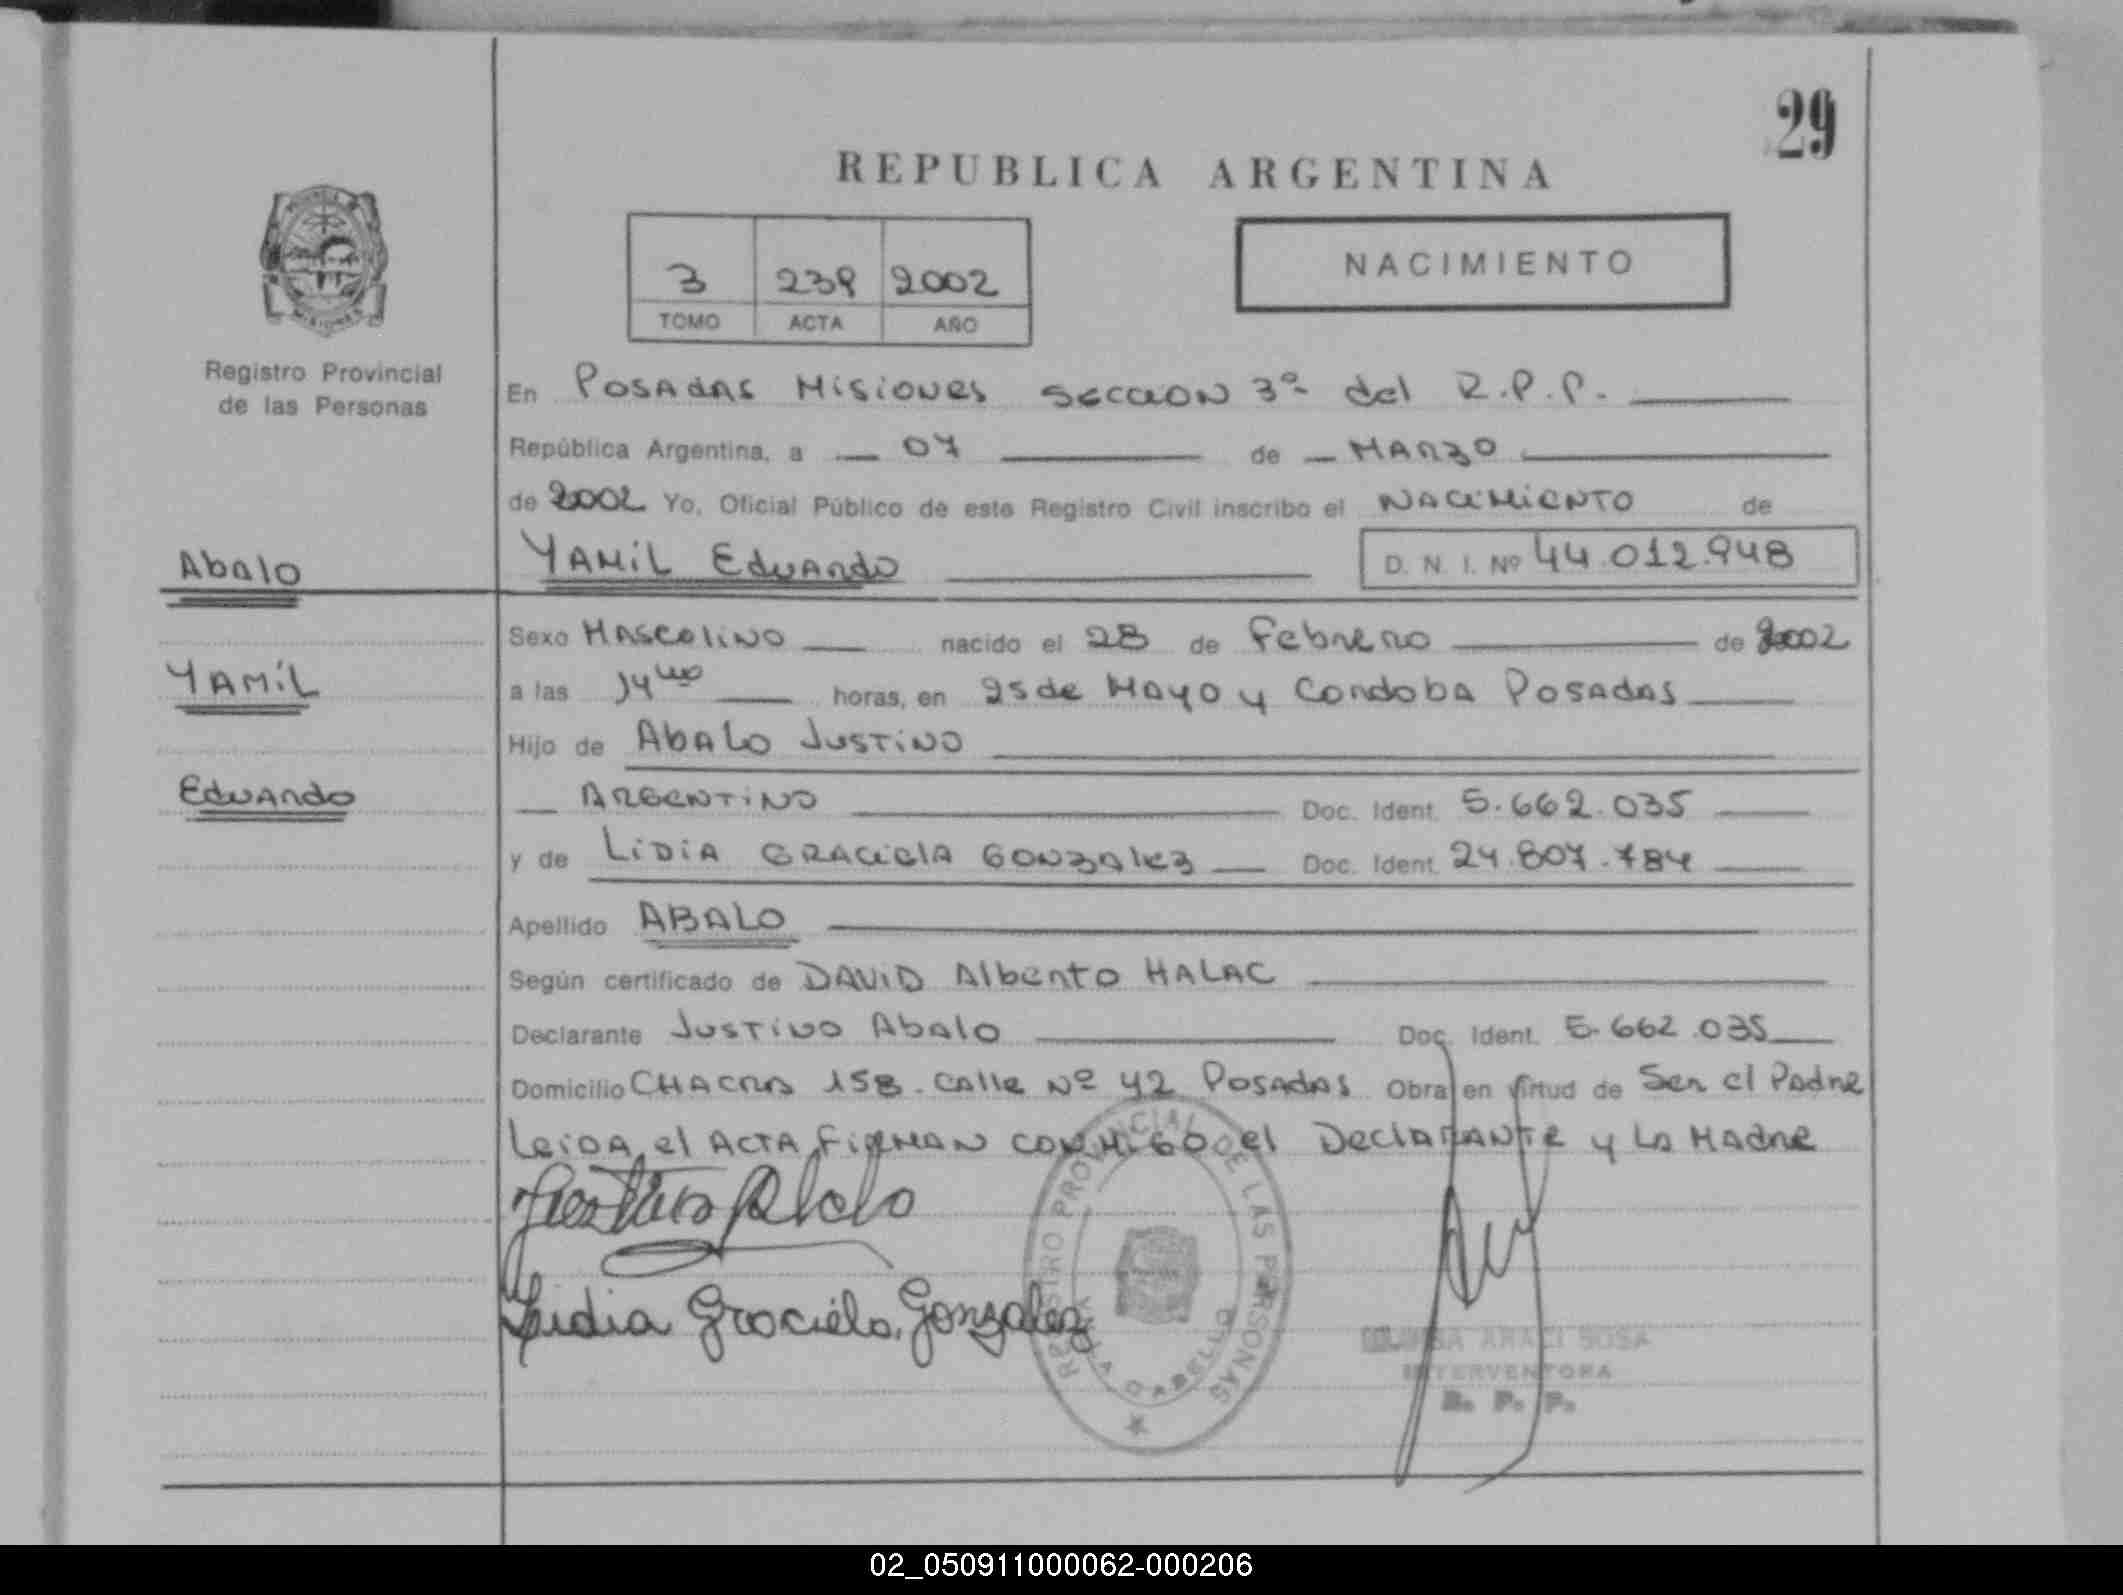 29
REPUBLICA ARGENTINA
3 239 2002
TOMO ACTA AÑO
NACIMIENTO
PROVINCIA
MISIONES
Registro Provincial
de las Personas
En Posadas Misiones Seccion 3ª del R.P.P.
República Argentina, a 07 de Marzo
de 2002 Yo, Oficial Público de este Registro Civil inscribo el Nacimiento de
Abalo
Yamil Eduardo D. N. I. Nº 44.012.948
Sexo Masculino nacido el 28 de Febrero de 2002
Yamil
a las 14 horas, en 25 de Mayo y Cordoba Posadas
Hijo de Abalo Justino
Eduardo
Argentino Doc. Ident. 5.662.035
y de Lidia Graciela Gonzalez Doc. Ident. 24.807.784
Apellido ABALO
Según certificado de David Alberto Halac
Declarante Justino Abalo Doc. Ident. 5.662.035
Domicilio Chacra 158. Calle Nº 42 Posadas Obra en virtud de Ser el Padre
Leida el Acta Firman conmigo el Declarante y La Madre
Justino Abalo
Lidia Graciela, Gonzalez
REGISTRO PROVINCIAL DE LAS PERSONAS
VILLA CABELLO
ARACI SOSA
INTERVENTORA
R. P. P.
02_050911000062-000206